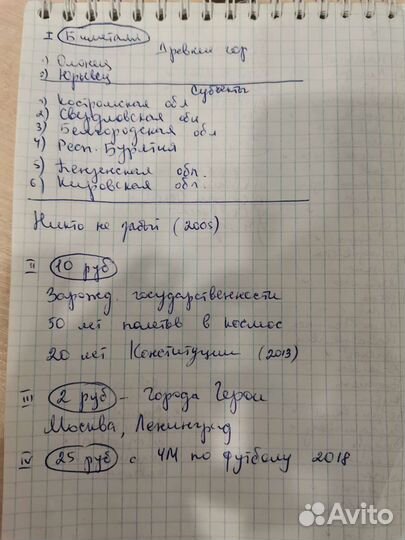 I Биметалл
Древние гор
1) Олонец
2) Юрьевец
Субъекты
1) Костромская обл
2) Свердловская обл
3) Белгородская обл
4) Респ. Бурятия
5) Пензенская обл.
6) Кировская обл.
Никто не забыт (2005)
II 10 руб
Зарожд. государственности
50 лет полетов в космос
20 лет Конституции (2013)
III 2 руб - Города Герои
Москва, Ленинград
IV 25 руб с ЧМ по футболу 2018
Avito